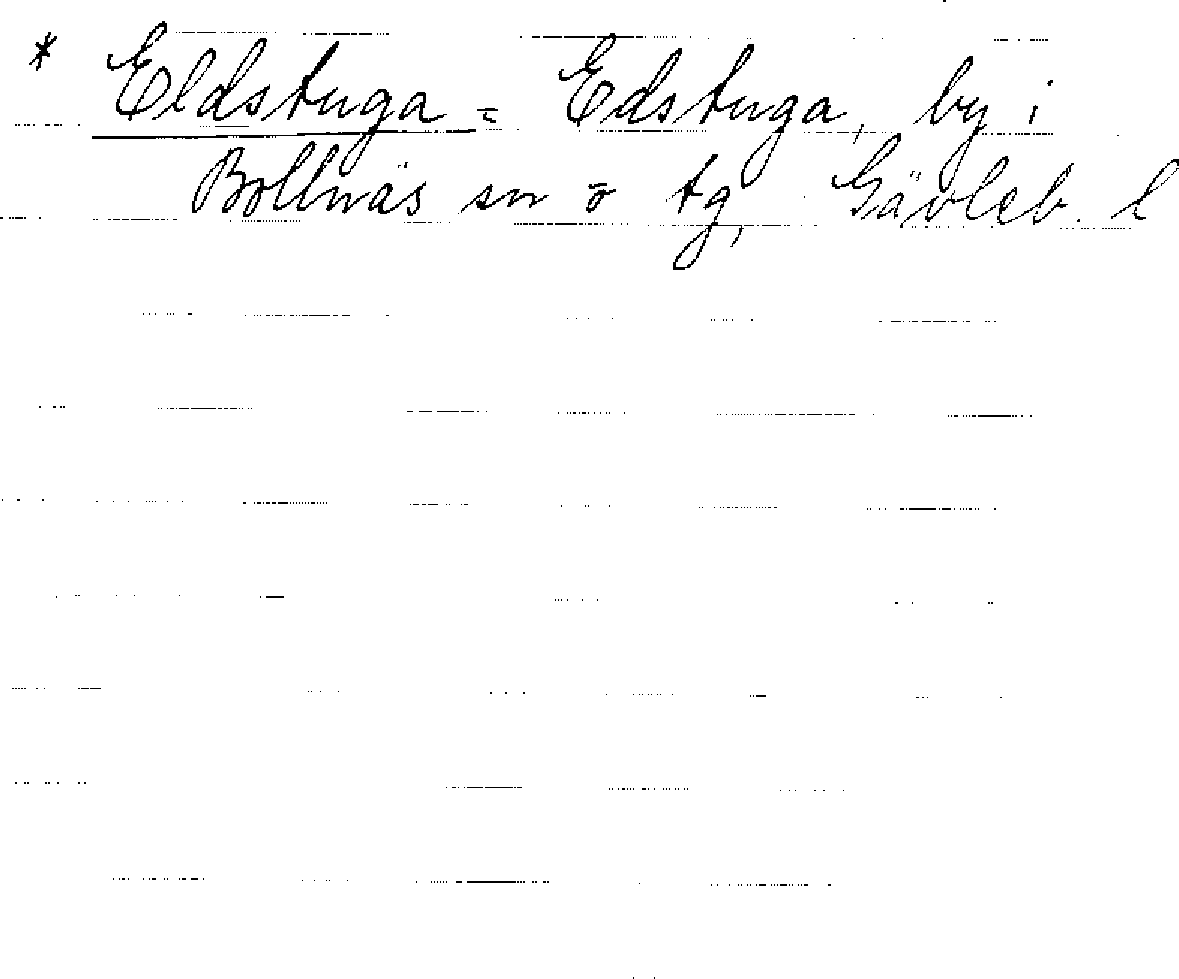 * Eldstuga = Edstuga, by i
Bollnäs sn o tg, Gävleb. l